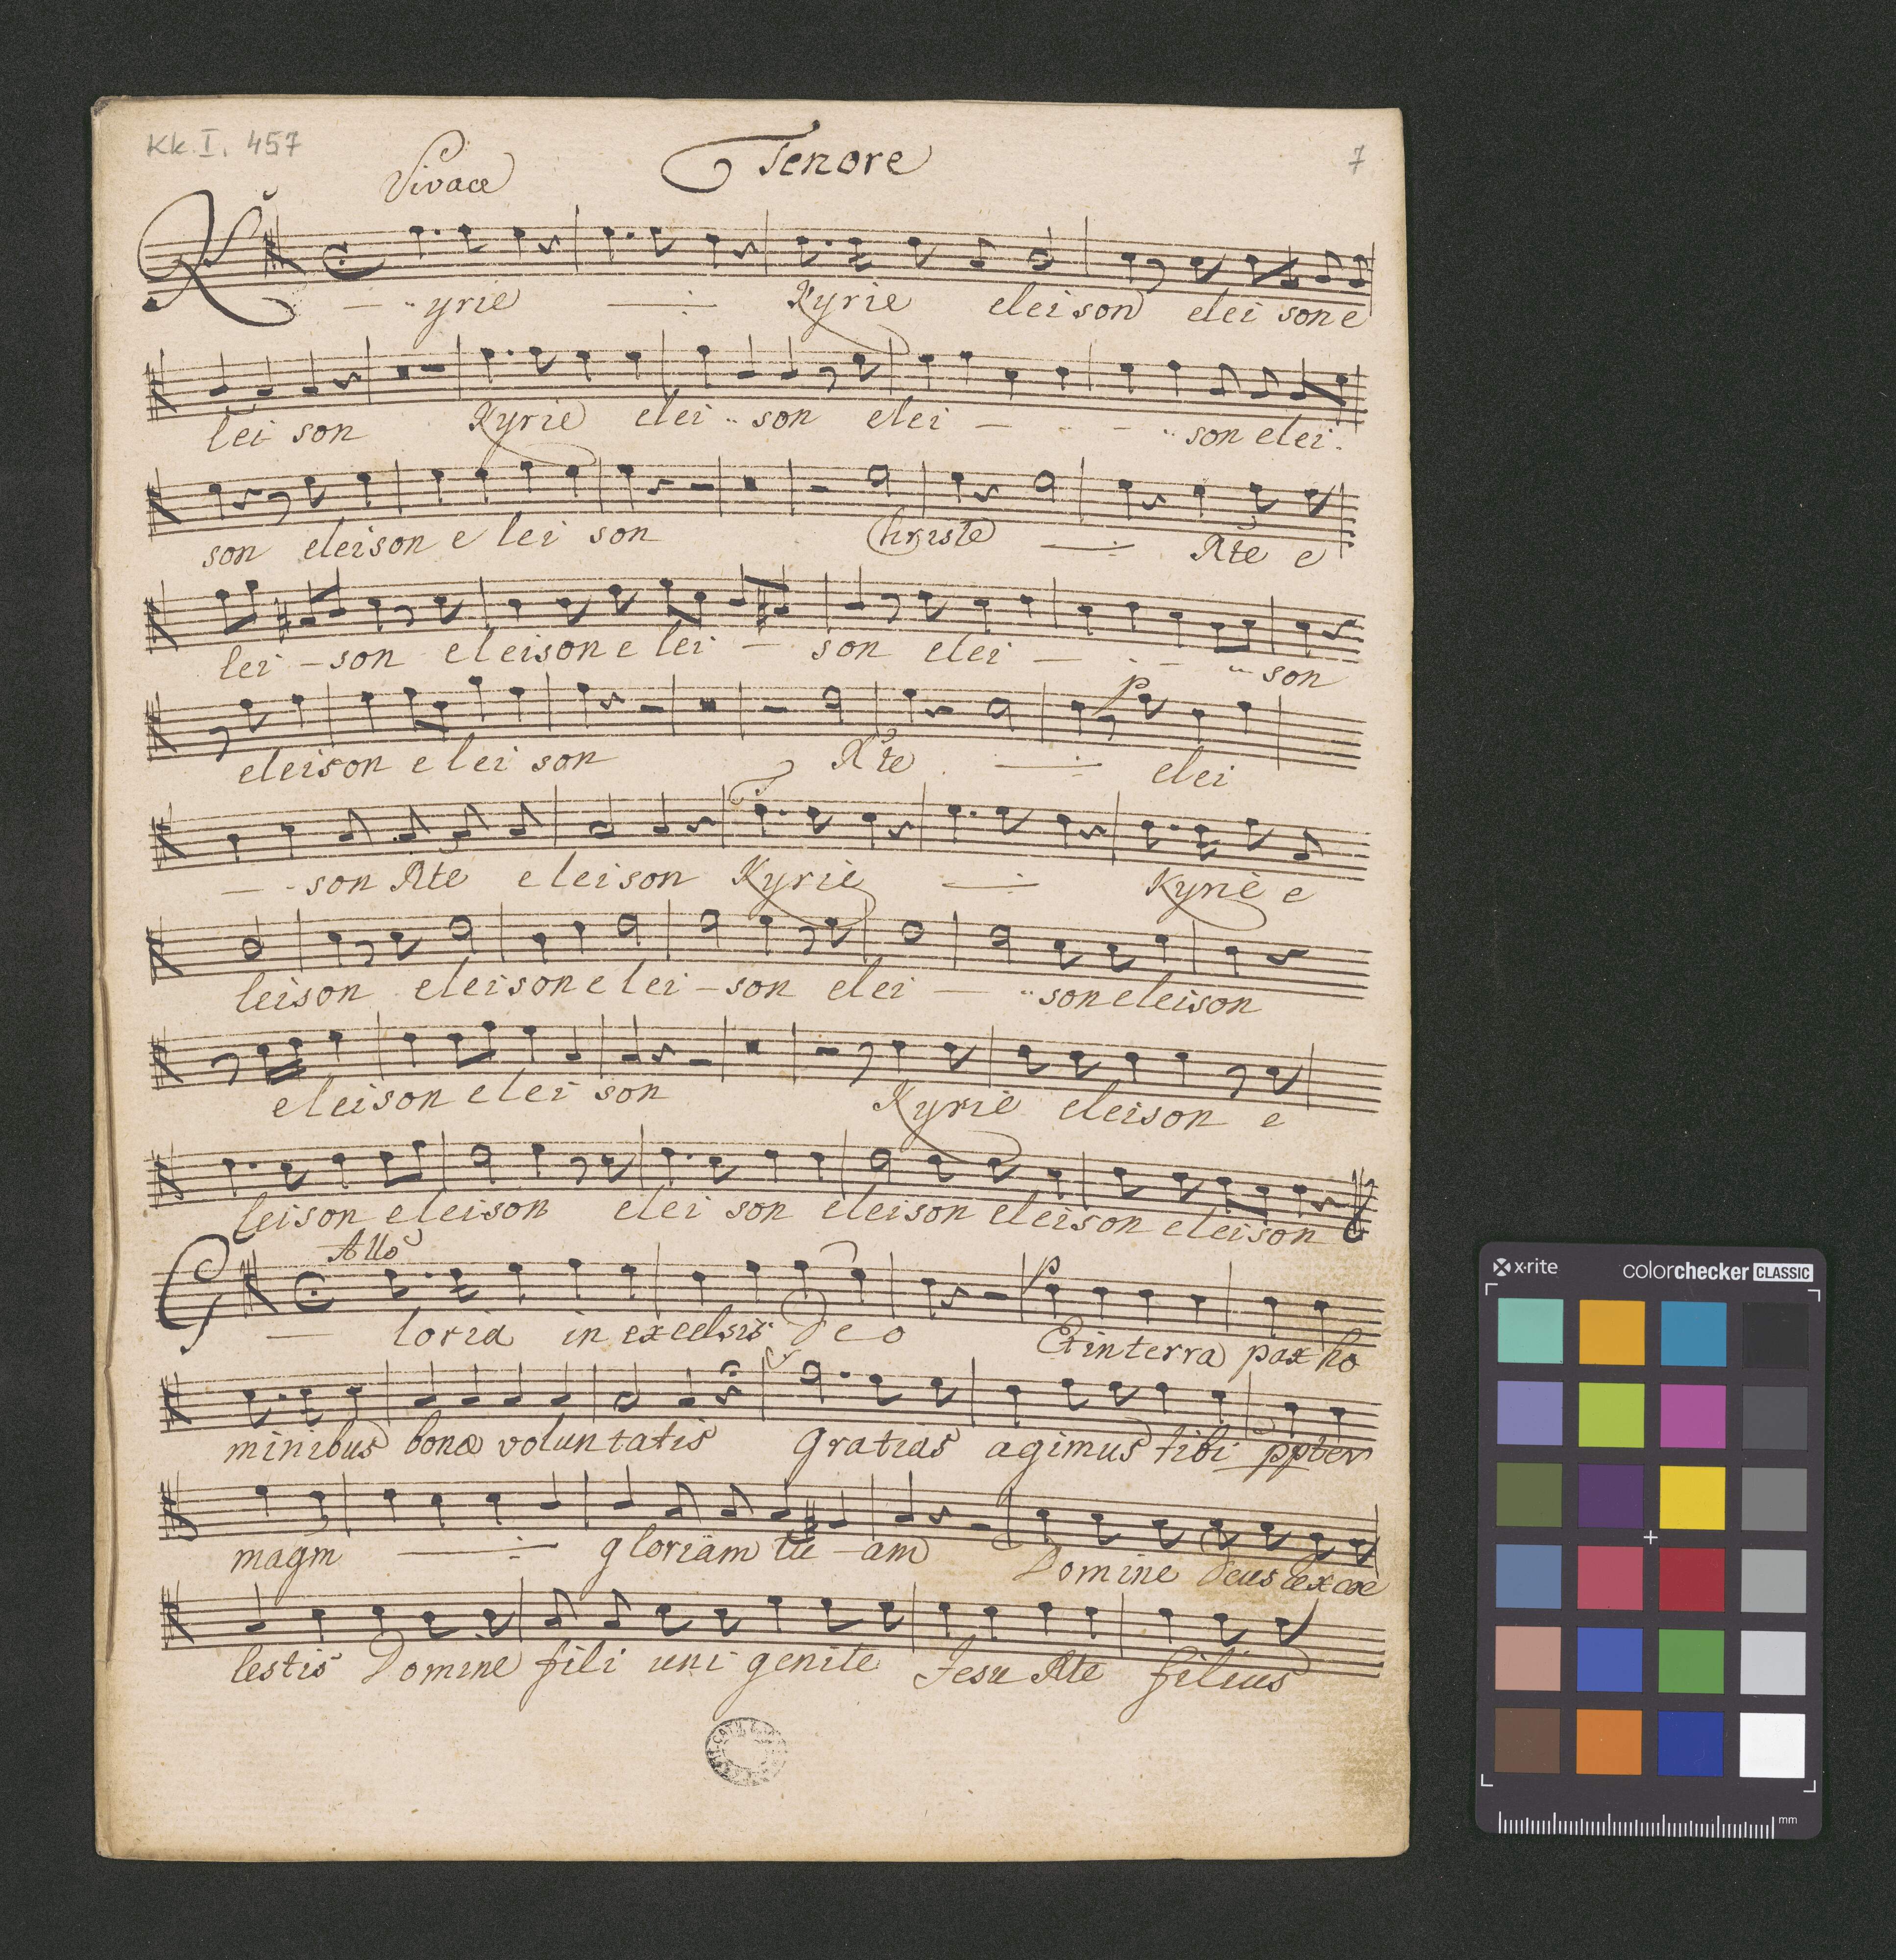 Kk. I. 457
Tenore
7
Vivace
Kyrie Kyrie eleison elei son e
lei son Kyrie elei son elei son elei
son eleison e lei son Christe Xte e
lei son eleison e lei son elei son
eleison e lei son Xte elei
p
son Xte eleison Kyrie Kyrie e
leison eleison e lei son elei son eleison
eleison elei son Kyrie eleison e
leison eleison elei son eleison eleison eleison
Allo
p
Gloria in excelsis Deo Et in terra pax ho
minibus bonæ voluntatis Gratias agimus tibi ppter
magm gloriam tu am Domine Deus
lestis Domine fili uni genite Jesu Xte filius
x-rite colorchecker CLASSIC
mm